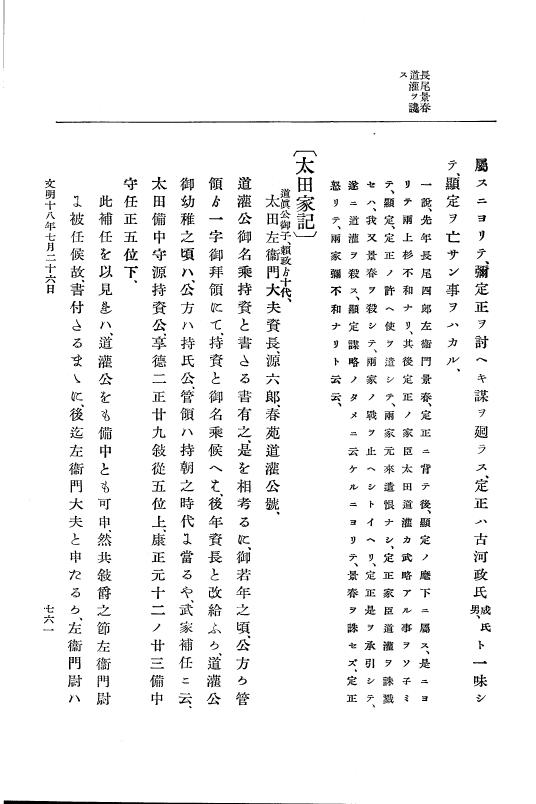 長尾景春
道灌ヲ讒
ス
屬スニヨリテ、彌定正ヲ討ヘキ謀ヲ廻ラス、定正ハ古河政氏成氏男、ト一味シ
テ、顯定ヲ亡サン事ヲハカル、
一説、先年長尾四郎左衞門景春、定正ニ背テ後、顯定ノ麾下ニ屬ス、是ニヨ
リテ兩上杉不和ナリ、其後定正ノ家臣太田道灌カ武略アル事ヲソ子ミ
テ、顯定、定正ノ許ヘ使ヲ遣シテ、兩家元來遺恨ナシ、定正家臣道灌ヲ誅戮
セハ、我又景春ヲ殺シテ、兩家ノ戰ヲ止ヘシトイヘリ、定正是ヲ承引シテ、
遂ニ道灌ヲ殺ス、顯定謀略ノタメニ云ケルニヨリテ、景春ヲ誅セズ、定正
怒リテ、兩家彌不和ナリト云云、
〔太田家記〕
道眞公御子、賴政ゟ十代、
太田左衞門大夫資長源六郎、春苑道灌公號、
道灌公御名乘持資と書さる書有之、是を相考るに、御若年之頃、公方ゟ管
領ゟ一字御拜領にて、持資と御名乘候へ共、後年資長と改給ふゟ、道灌公
御幼稚之頃ハ公方ハ持氏公、管領ハ持朝之時代ニ當るや、武家補任ニ云、
太田備中守源持資公、享德二正廿九敍從五位上、康正元十二ノ廿三備中
守任正五位下、
此補任を以見をハ、道灌公をも備中とも可申、然共敍爵之節左衞門尉
ニ被任候故、書付さるまゝに、後迄左衞門大夫と申たるゟ、左衞門尉ハ
文明十八年七月二十六日
七六一